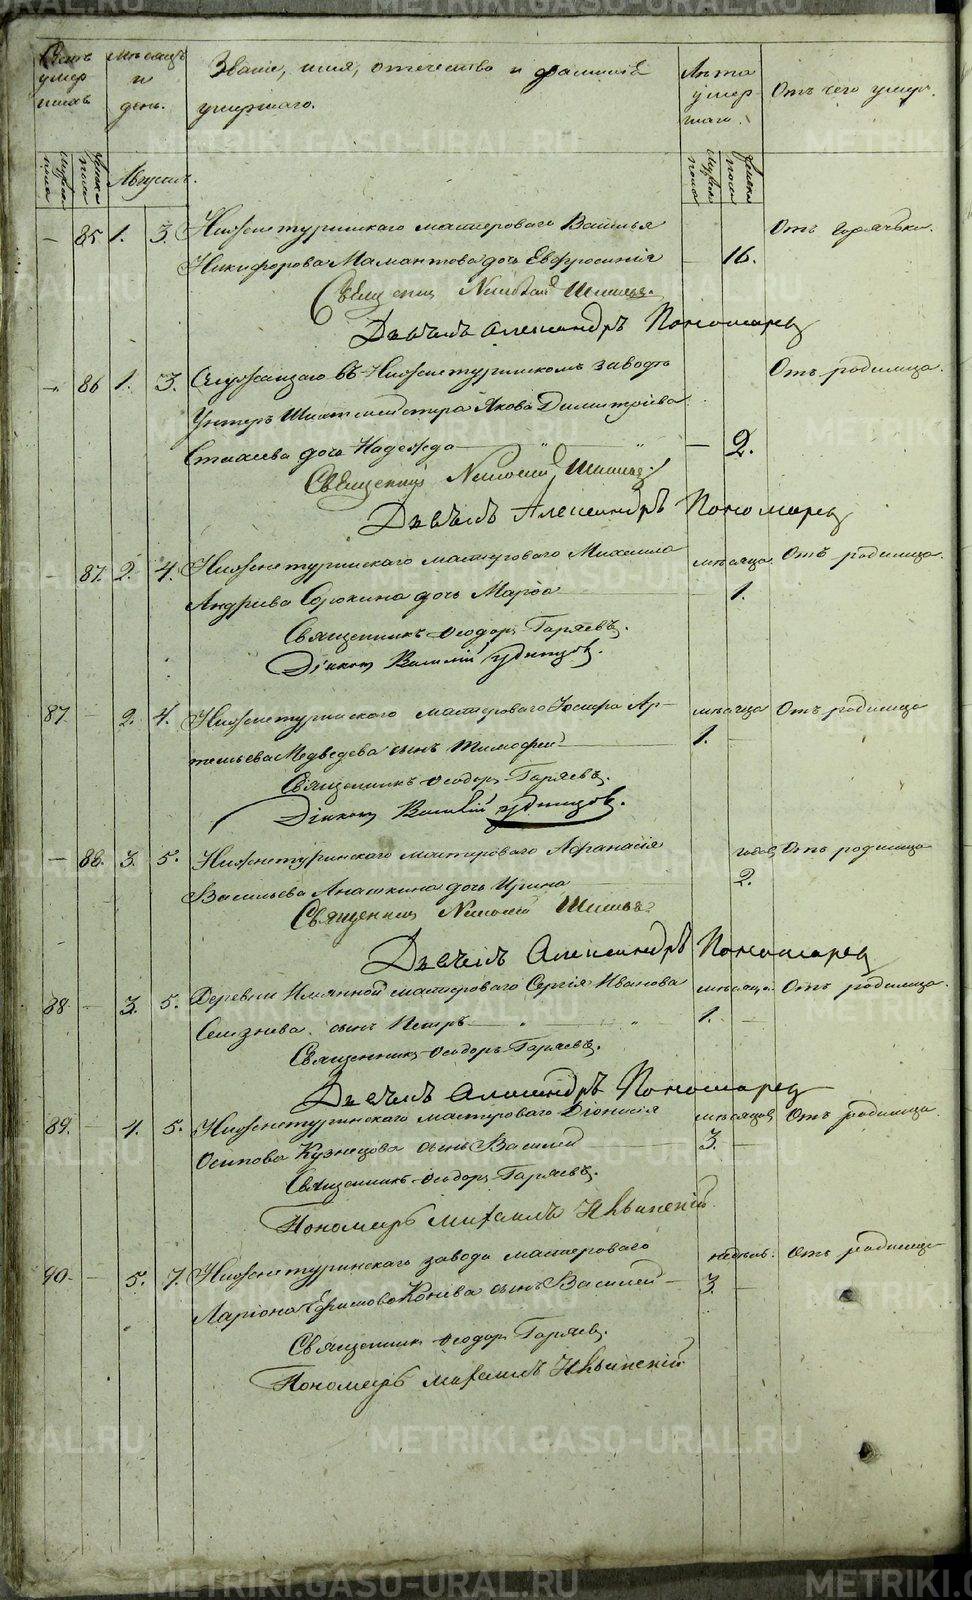 Счетъ умершихъ
Мѣсяцъ и день.
Званіе, имя, отечество и фамилія
умершаго.
Лѣта умершаго.
Отъ чего умеръ.
Мужеска пола
Женска пола
Августъ.
Мужеска пола
Женска пола
— 85 1. 3. Нижнетуринскаго мастероваго Василья Отъ горячки.
Никифорова Мамантова дочь Евфросинія — 16.
Священникъ Николай
Дьячекъ Александръ Пономарев
— 86 1. 3. Служащаго въ Нижнетуринскомъ заводѣ Отъ родимца.
Унтеръ Шихтмейстера Якова Димитріева
дочь Надежда — 2.
Священникъ Николай
Дьячекъ Александръ Пономарев
— 87. 2. 4. Нижнетуринскаго мастероваго Михаила мѣсяца Отъ родимца.
Андреева Сорокина дочь Марія 1.
Священникъ Ѳеодоръ Гаряевъ.
Діаконъ Василій Удинцовъ.
87 — 2. 4. Нижнетуринскаго мастероваго Іосифа Ар- мѣсяца Отъ родимца
темьева Медведева сынъ Тимофей 1. —
Священникъ Ѳеодоръ Гаряевъ.
Діаконъ Василій Удинцовъ.
— 88. 3. 5. Нижнетуринскаго мастероваго Афанасія годовъ Отъ родимца
Васильева Анашкина дочь Ирина 2.
Священникъ Николай
Дьячекъ Александръ Пономарев
88 — 3. 5. Деревни Имянной мастероваго Сергія Иванова мѣсяца. Отъ родимца.
Селезнева сынъ Петръ 1. —
Священникъ Ѳеодоръ Гаряевъ.
Дьячекъ Александръ Пономарев
89. — 4. 5. Нижнетуринскаго мастероваго Діонисія мѣсяцов Отъ родимца.
Осипова Кузнецова сынъ Василей 3. —
Священникъ Ѳеодоръ Гаряевъ.
Пономарь Михаилъ
90. — 5. 7. Нижнетуринскаго завода мастероваго недѣль. Отъ родимца
Ларіона Ефимова Конева сынъ Василей — 3. —
Священникъ Ѳеодоръ Гаряев.
Пономарь Михаилъ
METRIKI.GASO-URAL.RU